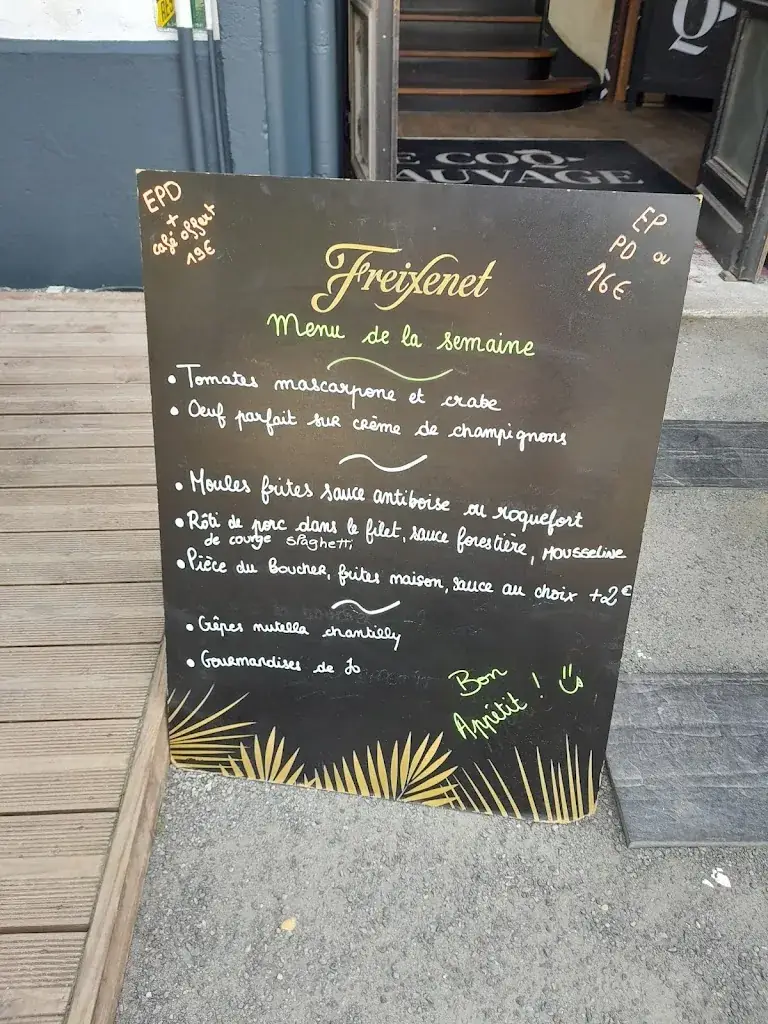 Q
E COQ
AUVAGE
EPD
+
café offert
19€
EP
PD ou
16€
Freixenet
Menu de la semaine
• Tomates mascarpone et crabe
• Oeuf parfait sur crème de champignons
• Moules frites sauce antiboise ou roquefort
• Rôti de porc dans le filet, sauce forestière, MOUSSELINE
de courge spaghetti
• Pièce du Boucher, frites maison, sauce au choix +2€
• Crêpes nutella chantilly
• Gourmandises de Jo
Bon
Appétit !